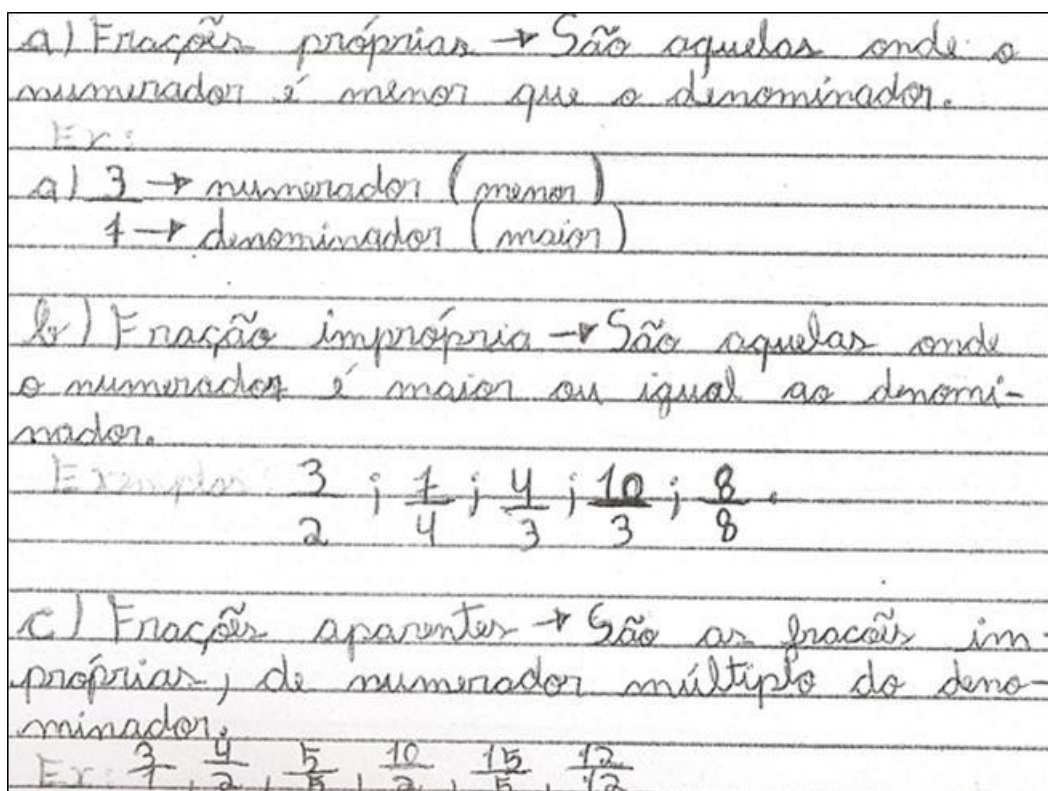 a) Frações próprias → São aquelas onde o
numerador é menor que o denominador.
Ex:
a) 3 → numerador (menor)
7 → denominador (maior)
b) Fração imprópria → São aquelas onde
o numerador é maior ou igual ao denomi-
nador.
Exemplos: 3/2 ; 7/4 ; 4/3 ; 10/3 ; 8/8 .
c) Frações aparentes → São as fracões im-
próprias, de numerador múltiplo do deno-
minador.
Ex: 3/1 , 4/2 , 5/5 , 10/2 , 15/5 , 12/12